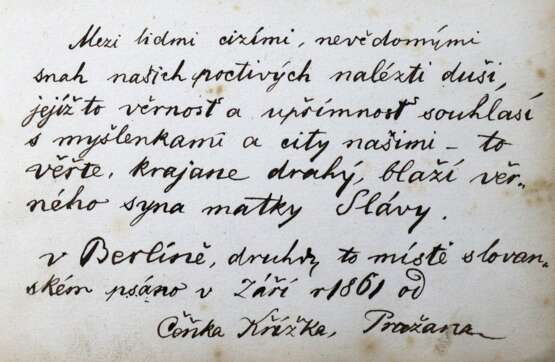 Mezi lidmi cizími, nevědomými
snah našich poctivých nalézti duši,
jejíž to věrnost a upřímnost souhlasí
s myšlenkami a city našimi – to
věřte, krajane drahý, blaží věr-
ného syna matky Slávy.
v Berlíně, druhdy to místě slovan-
ském psáno v Září r 1861 od
Čeňka Křížka, Pražana